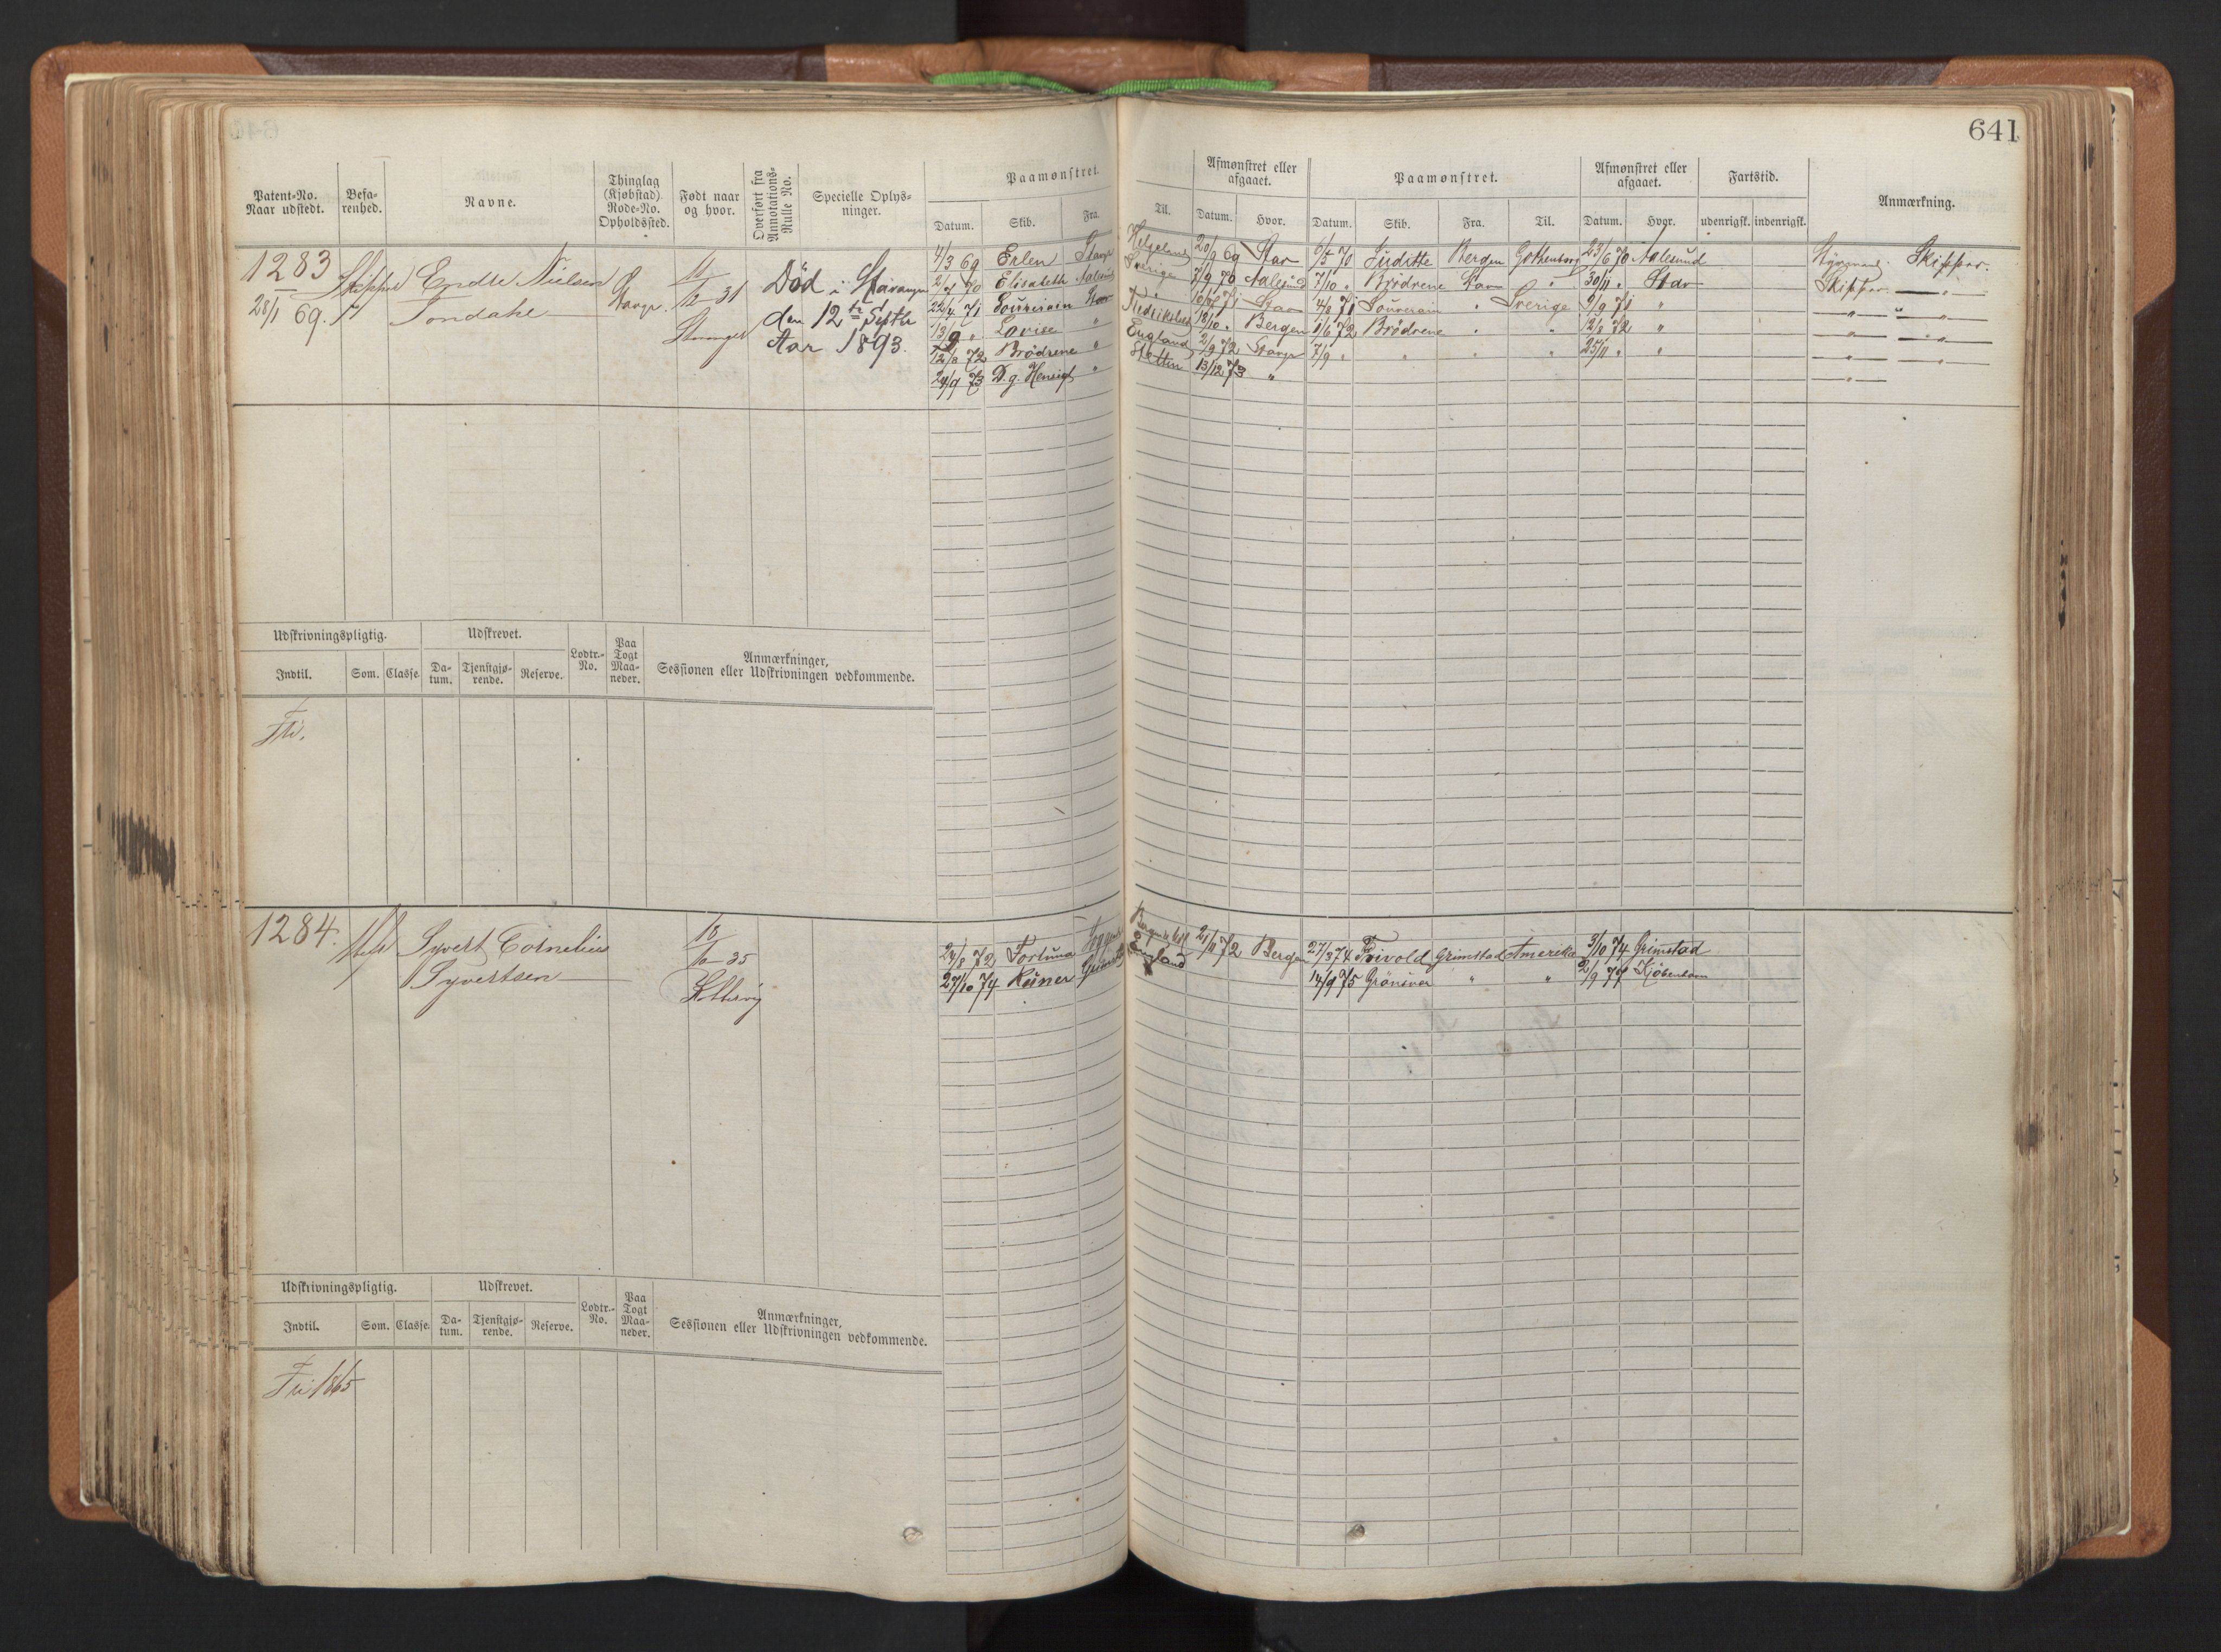 641
Patent-No. Naar udstedt.
Befarenhed.
Navne.
Thinglag (Kjøbstad). Rode-No. Opholdssted.
Født naar og hvor.
Overført fra Annotations-Rulle No.
Specielle Oplysninger.
Paamønstret.
Datum. Skib. Fra. Til.
Afmønstret eller afgaaet.
Datum. Hvor.
Paamønstret.
Datum. Skib. Fra. Til.
Afmønstret eller afgaaet.
Datum. Hvor.
Fartstid.
udenrigsk. indenrigsk.
Anmærkning.
1283
28/1 69.
Endre Nielsen
Stavgr.
31
Stavanger
Død i Stavanger
den 12te Septbr
Aar 1893.
4/3 69 Erlen Stavgr Helgeland 20/9 69 Stav 6/5 70 Juditte Bergen Gothenborg 23/6 70 Aalesund Styrmand. Skipper.
2/7 70 Elisabeth Aalesund Sverige 7/9 70 Aalesund 7/10 " Brødrene Stav " 30/11 " Stav Skipper. "
22/4 71 Souverain Stav " 10/7 71 Stav 4/8 71 Souverain " Sverige 9/9 71 " " "
13/9 " Lovise " 19/10 " Bergen 1/6 72 Brødrene " " 12/8 72 " " "
12/8 72 Brødrene " England 2/9 72 Stavgr 7/9 " " " " 25/11 " " " "
24/9 73 D. g. Hensigt " Stettin 13/12 73 " "
Udskrivningspligtig.
Indtil. Som. Classe.
Udskrevet.
Datum. Tjenstgjørende. Reserve.
Lodtr.-No.
Paa Togt Maaneder.
Anmærkninger,
Sessionen eller Udskrivningen vedkommende.
Fri.
1284.
Syvert Cornelius
Syvertsen
35
24/8 72 Fortuna 21/11 72 Bergen 27/3 74 Frivold Grimstad Amerika 3/10 74 Grimstad
27/10 74 England 14/9 75 " " 2/9 77 Kjøbenhavn
Udskrivningspligtig.
Indtil. Som. Classe.
Udskrevet.
Datum. Tjenstgjørende. Reserve.
Lodtr.-No.
Paa Togt Maaneder.
Anmærkninger,
Sessionen eller Udskrivningen vedkommende.
Fri 1865